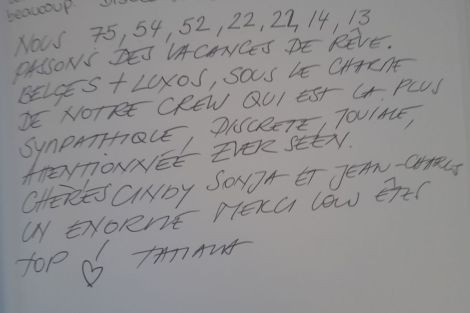 beaucoup.
NOUS 75, 54, 52, 22, 22, 14, 13
PASSONS DES VACANCES DE RÊVE.
BELGES + LUXOS, SOUS LE CHARME
DE NOTRE CREW QUI EST LA PLUS
SYMPATHIQUE, DISCRETE, JOVIALE,
ATTENTIONNÉE EVER SEEN.
CHÈRES CINDY SONJA ET JEAN-CHARLES
UN ENORME MERCI VOUS ÊTES
TOP ! ♡ TATIANA